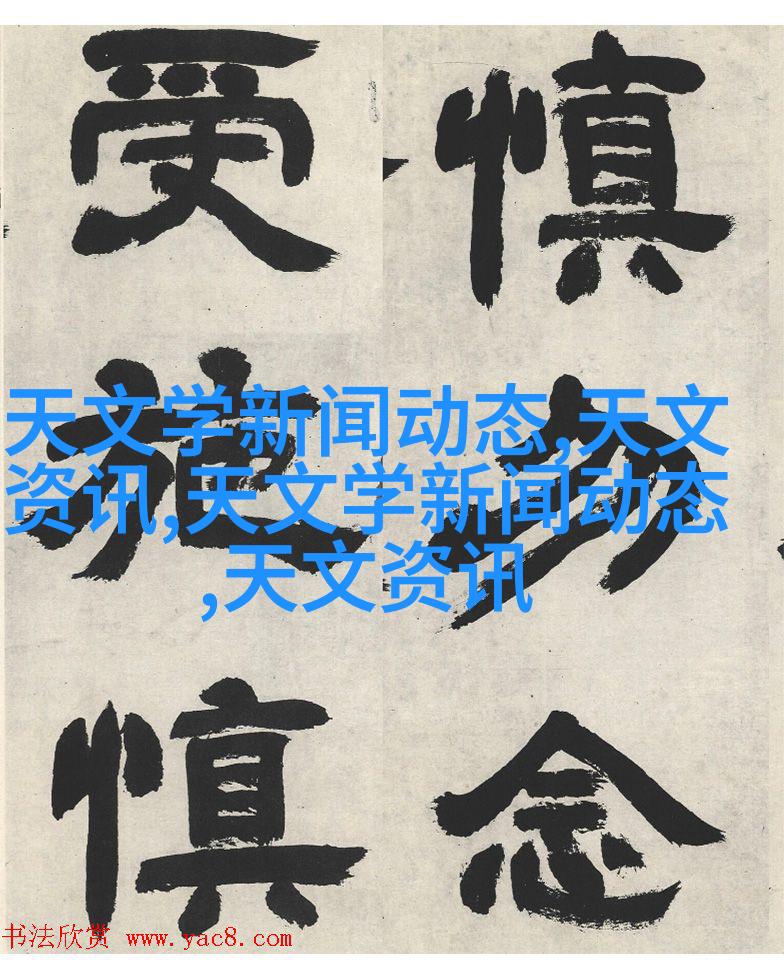 慎勿念
受施慎
天文学新闻动态,天文
资讯,天文学新闻动态
,天文资讯
书法欣赏 www.yac8.com